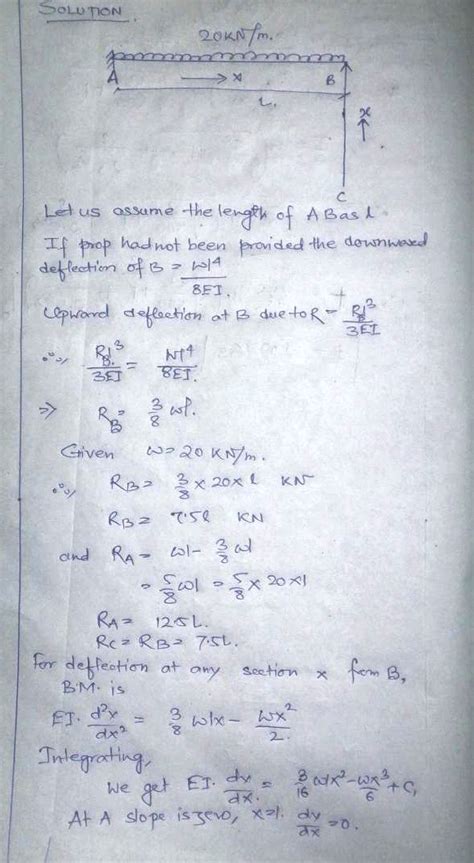 SOLUTION.
20KN/m.
A → x B
L.
x
C
Let us assume the length of AB as l.
If prop had not been provided the downward
deflection of B = wl⁴/8EI.
Upward deflection at B due to R = R_B l³/3EI
∴ R_B l³/3EI = wl⁴/8EI.
⇒ R_B = 3/8 wl.
Given w = 20 KN/m.
∴ R_B = 3/8 × 20 × l KN
R_B = 7.5l KN
and R_A = wl - 3/8 wl
= 5/8 wl = 5/8 × 20 × l
R_A = 12.5L.
R_C = R_B = 7.5L.
for deflection at any section x from B,
B.M. is
EI. d²y/dx² = 3/8 wlx - wx²/2.
Integrating,
we get EI. dy/dx. = 3/16 wlx² - wx³/6 + C₁
At A slope is zero, x=l. dy/dx = 0.